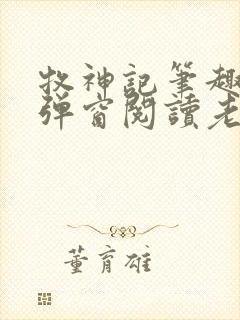 牧神記筆趣
彈窗閱讀老
董育雄